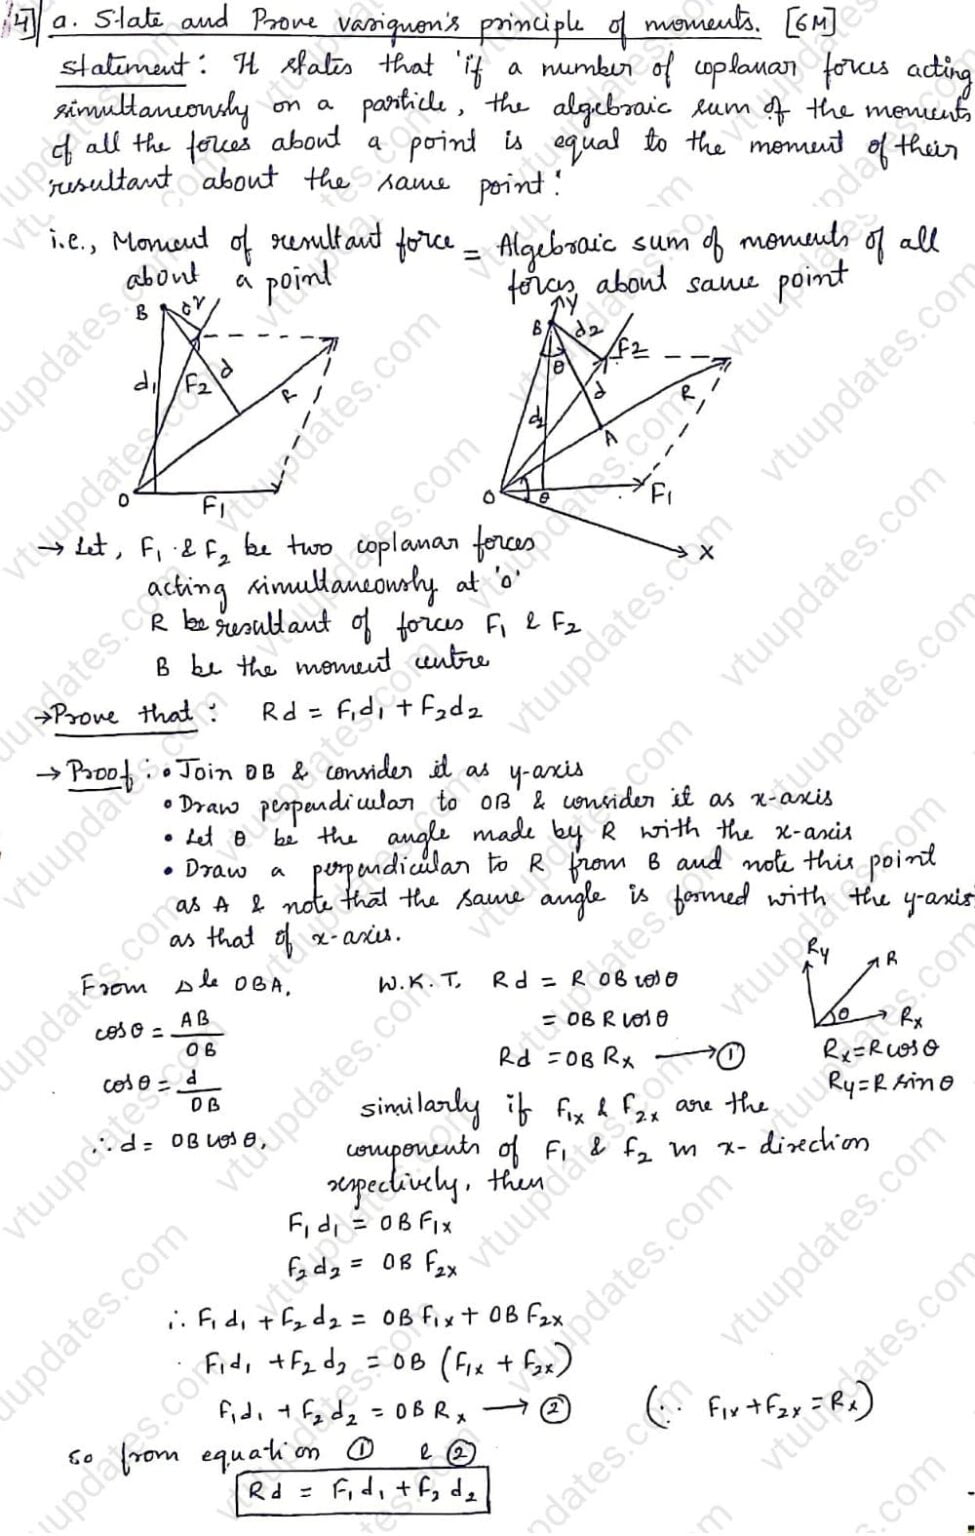 4] a. State and Prove varignon's principle of moments. [6M]
Statement: It states that 'if a number of coplanar forces acting
simultaneously on a particle, the algebraic sum of the moments
of all the forces about a point is equal to the moment of their
resultant about the same point'.
i.e., Moment of resultant force = Algebraic sum of moments of all
about a point forces about same point
B d
d1 F2 d R
O F1
Y
B d2 F2
θ d R
d1 A
O θ F1
X
→ Let, F1 & F2 be two coplanar forces
acting simultaneously at 'O'
R be resultant of forces F1 & F2
B be the moment centre
→ Prove that: Rd = F1d1 + F2d2
→ Proof: • Join OB & consider it as y-axis
• Draw perpendicular to OB & consider it as x-axis
• Let θ be the angle made by R with the x-axis
• Draw a perpendicular to R from B and note this point
as A & note that the same angle is formed with the y-axis
as that of x-axis.
From Δle OBA,
cosθ = AB/OB
cosθ = d/OB
∴ d = OB cosθ,
W.K.T, Rd = R OB cosθ
= OB R cosθ
Rd = OB Rx → ①
Ry R
θ Rx
Rx = R cosθ
Ry = R sinθ
similarly if F1x & F2x are the
components of F1 & F2 in x-direction
respectively, then
F1 d1 = OB F1x
F2 d2 = OB F2x
∴ F1 d1 + F2 d2 = OB F1x + OB F2x
F1d1 + F2 d2 = OB (F1x + F2x)
F1d1 + F2 d2 = OB Rx → ② (∵ F1x + F2x = Rx)
so from equation ① & ②
Rd = F1 d1 + F2 d2
vtuupdates.com